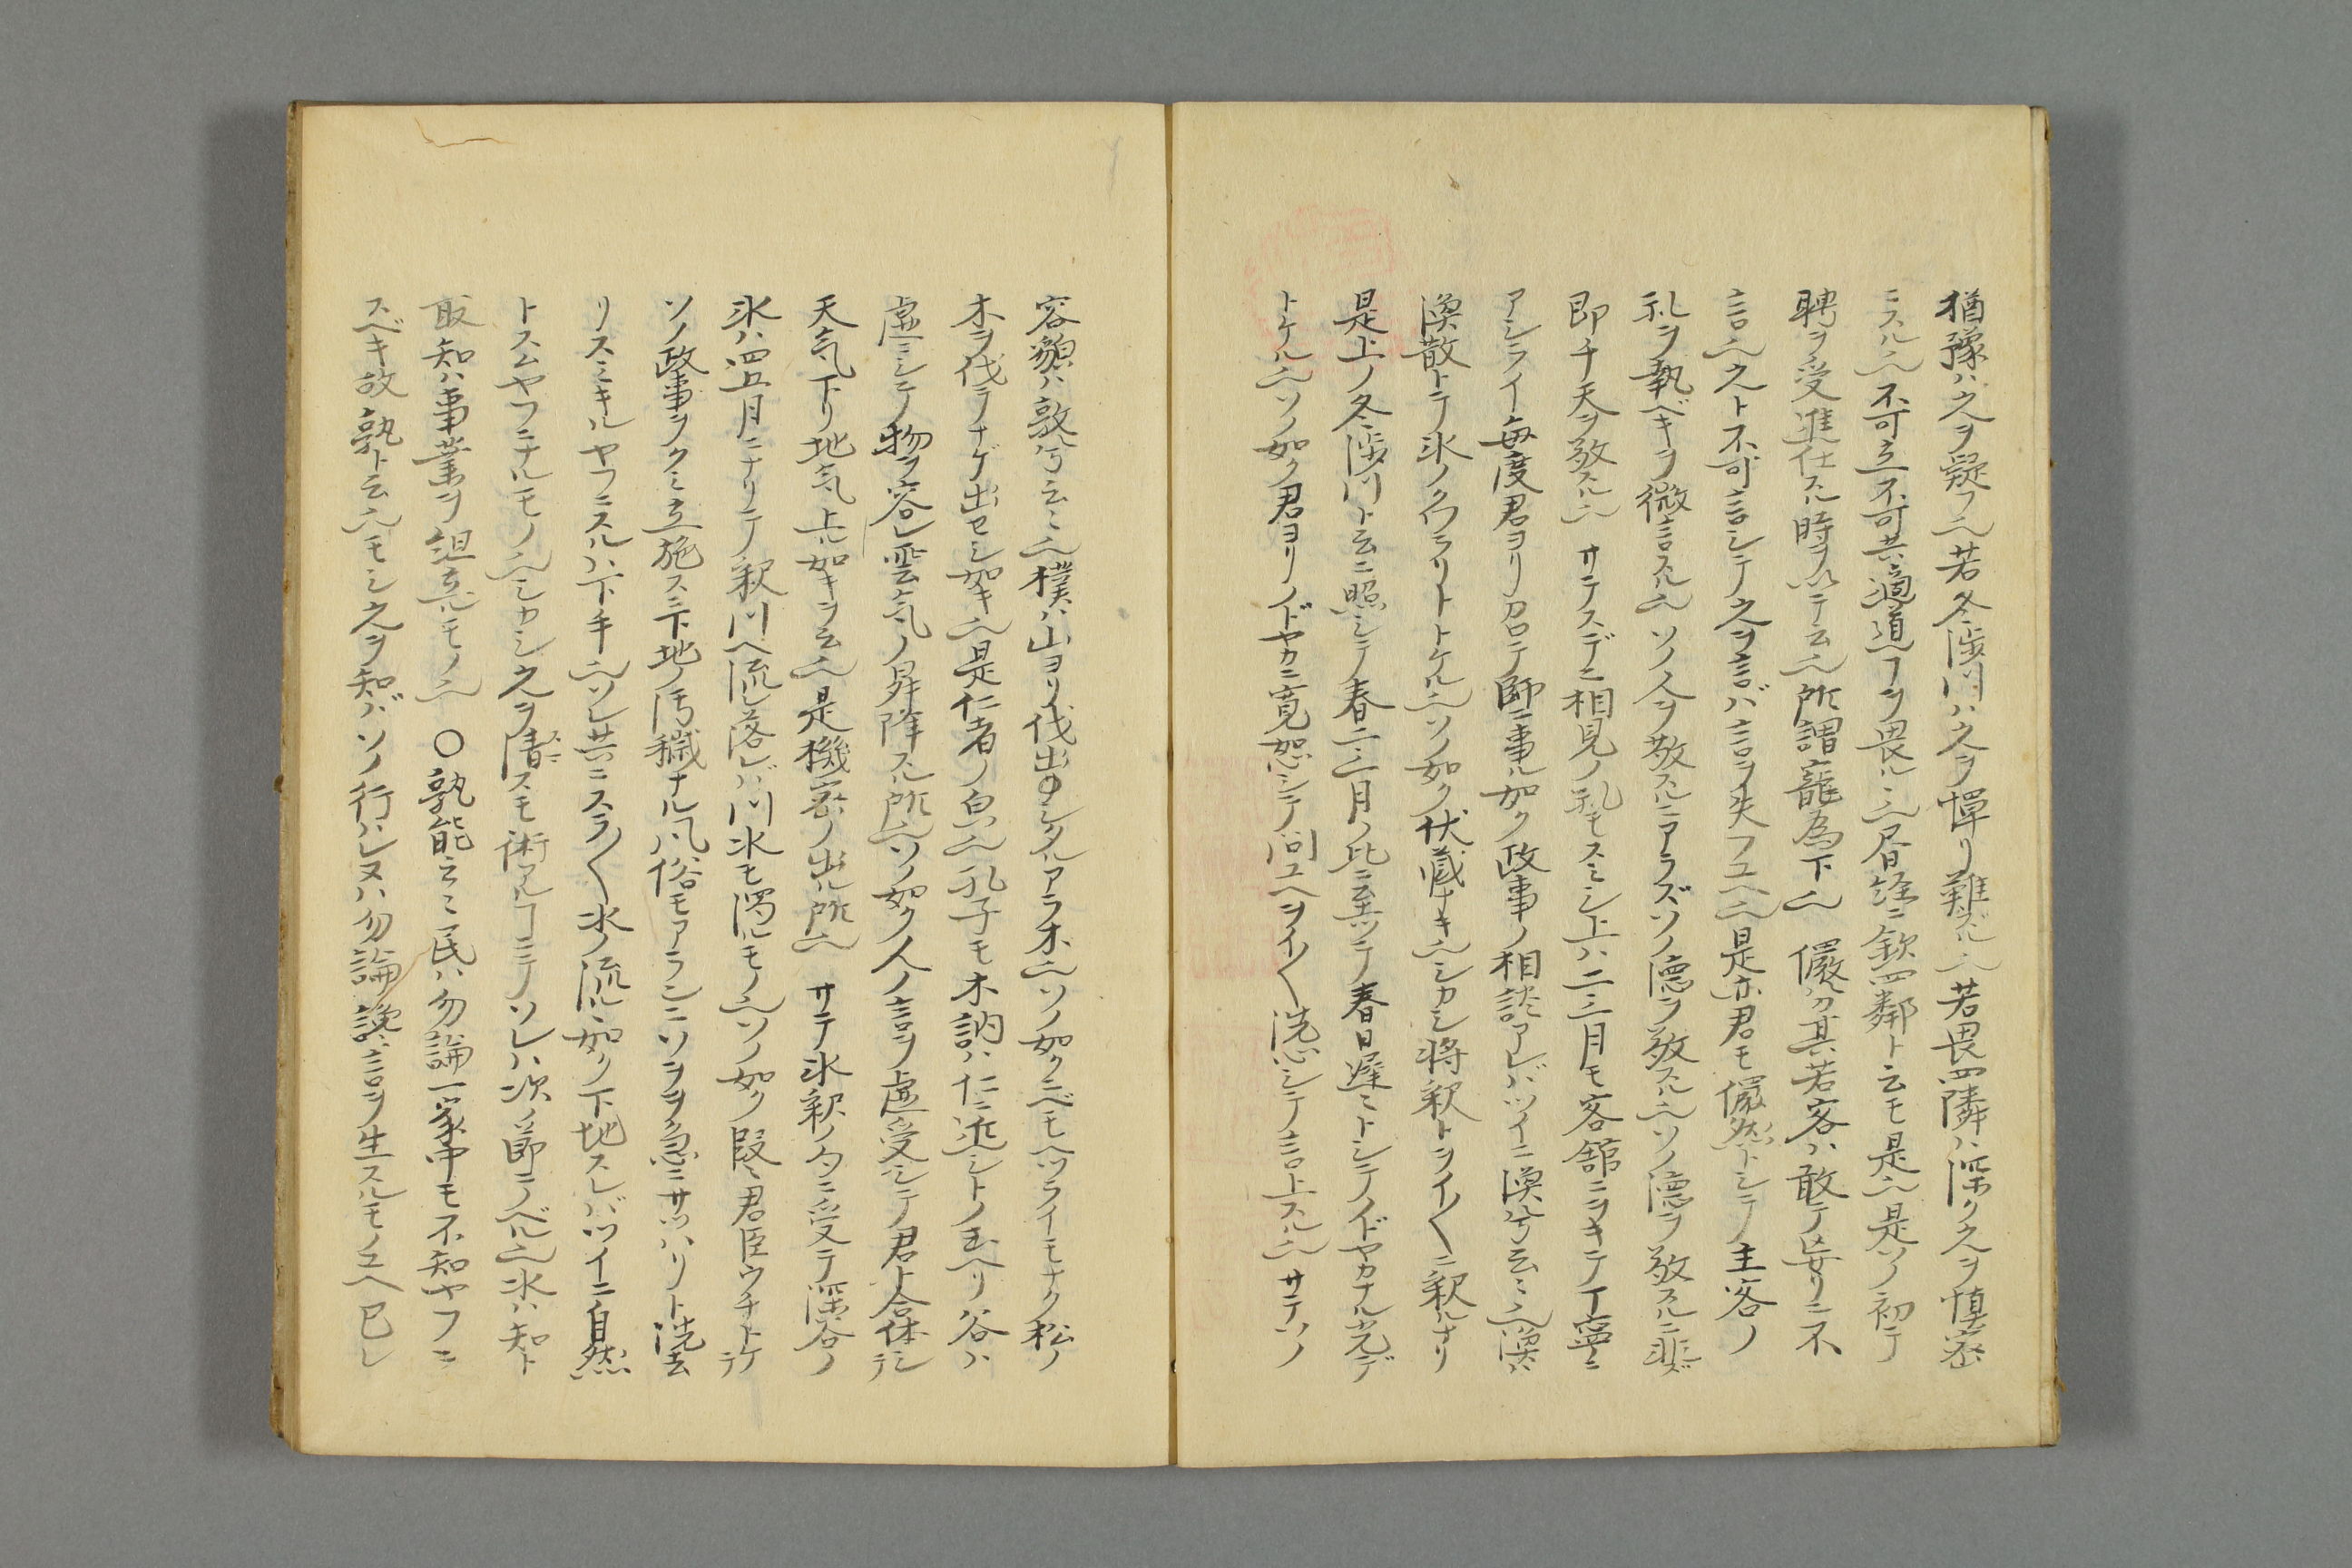 猶豫ハ之ヲ疑フ也若冬渉川ハ之ヲ憚リ難ズル也若畏四隣ハ深ク之ヲ慎密
ニスル也不可立不可共適道ヿヲ畏ル也書経ニ欽四鄰ト云モ是也是ソノ初テ
聘ヲ受進仕スル時ヲ以テ云也所謂寵為下也 儼兮其若客ハ敢テ妄リニ不
言也之ト不可言シテ之ヲ言バ言ヲ失フユヘ也是亦君モ儼然トシテ主客ノ
礼ヲ執ベキヲ微言スル也ソノ人ヲ敬スルニアラズソノ徳ヲ敬スル也ソノ徳ヲ敬スルニ非ズ
即チ天ヲ敬スル也 サテスデニ相見ノ礼モスミシ上ハ二三月モ客舘ニヲキテ丁寧ニ
アシライ毎度君ヨリカロテ師ニ事ル如ク政事ノ相談アレバツイニ渙兮云ミ也渙ハ
渙散トテ氷ノクワラリトトケル也ソノ如ク伏蔵ナキ也シカシ将釈トヲイ〱ニ釈ルナリ
是上ノ冬渉川ト云ニ照シテ春二三月ノ比ニ至ツテ春日遅ミトシテノドヤカナル光デ
トケル也ソノ如ク君ヨリノドヤカニ寛恕シテ問ユヘヲイ〱洗心シテ言上スル也サテソノ
容貌ハ敦兮云ミ也樸ハ山ヨリ伐出シタルアラ木也ソノ如クニベモヘツライモナク松ノ
木ヲ伐テナゲ出セシ如キ也是仁者ノ皃也孔子モ木訥ハ仁ニ近シトノ玉ヘリ谷ハ
虚ニシテ物ヲ容レ雲気ノ昇降スル所也ソノ如ク人ノ言ヲ虚受シテ君ト合体シテ
天気下リ地気上ル如キヲ云也是機密ノ出ル所也 サテ氷釈ノ句ニ受テ渾谷ノ
氷ハ四五月ニナリテ釈川ヘ流レ落レバ川水モ濁ルモノ也ソノ如ク賢君臣ウチトケテ
ソノ政事ヲクミ立施ス下地ノ汚穢ナル風俗モアランニソヲヲ急ニサツハリト洗去
リスミキルヤフニスルハ下手也ソレ共ニスラ〱水ノ流ル如ク下地スレバツイニ自然
トスムヤフニナルモノ也シカシ之ヲ清スモ術アルヿニテソレハ次ノ節ニノベル也氷ハ知ト
取知ハ事業ヲ組立ルモノ也 〇孰能云ミ民ハ勿論一家中モ不知ヤフニ
スベキ故孰ト云也モシ之ヲ知バソノ行ハレヌハ勿論讒言ヲ生スルモノユヘ巳レ